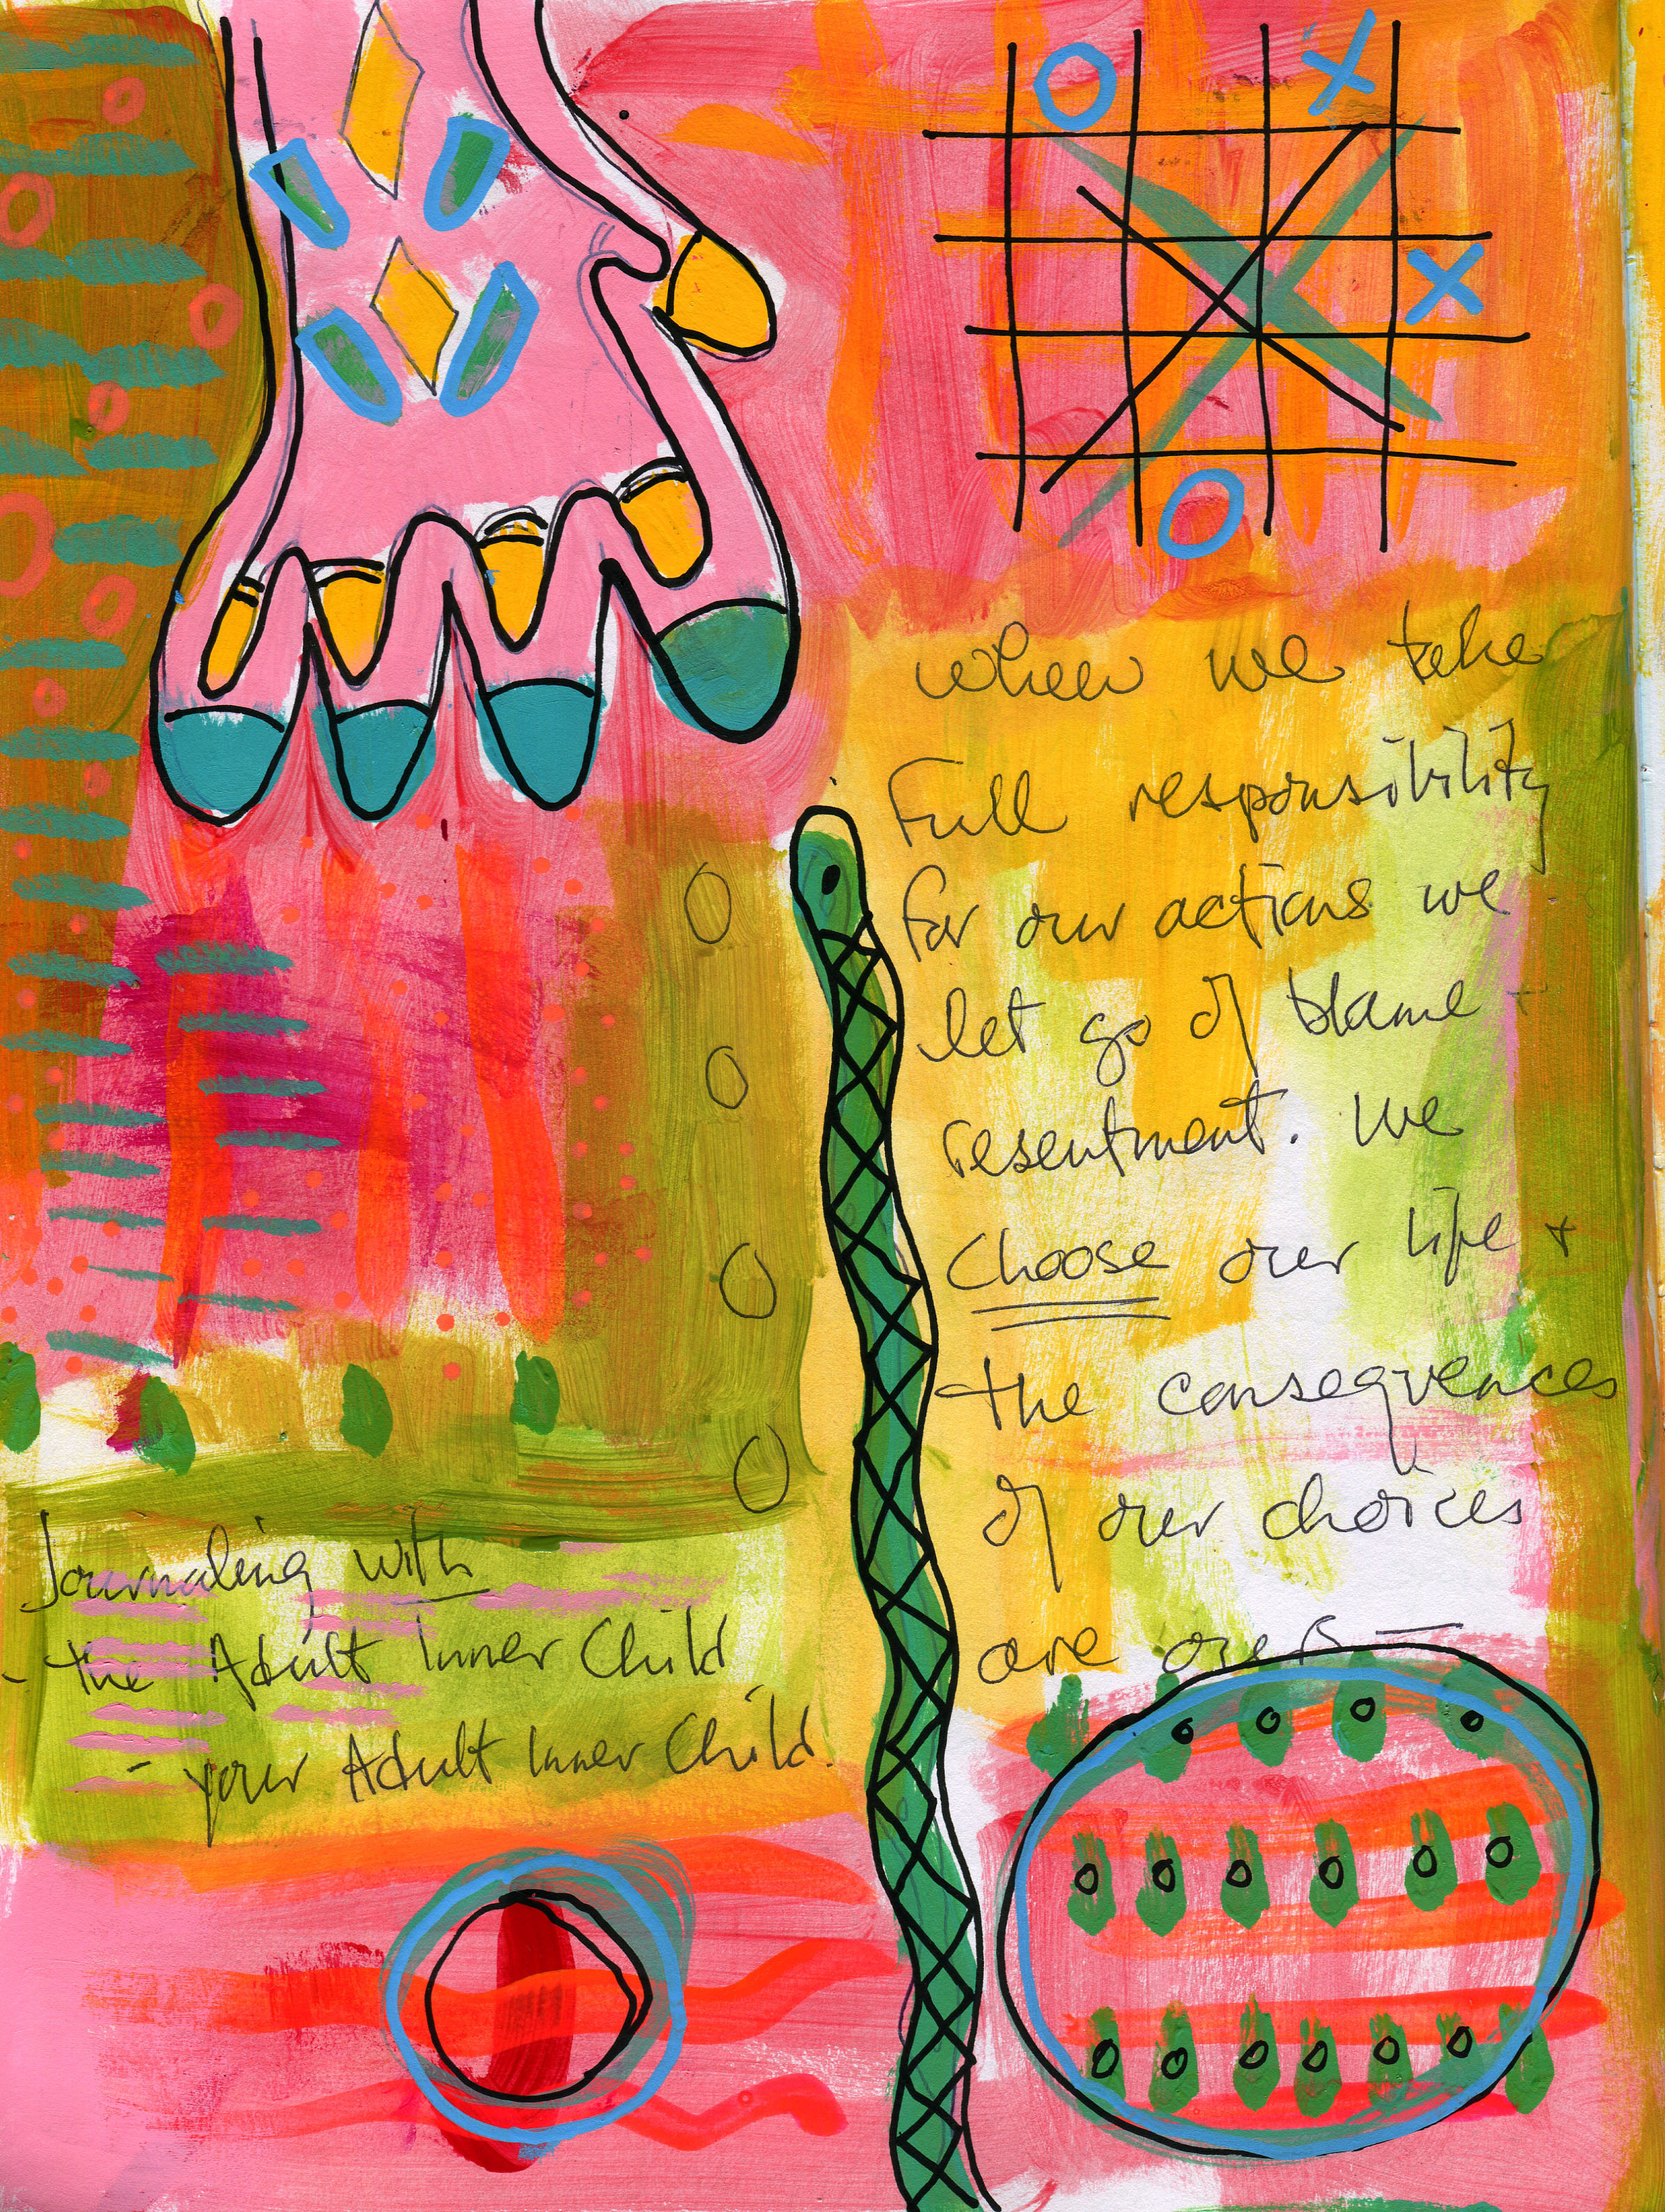 when we take
Full responsibility
for our actions we
let go of blame +
resentment. We
choose our life +
the consequences
of our choices
are ours —
Journaling with
- the Adult Inner Child
- your Adult Inner Child.